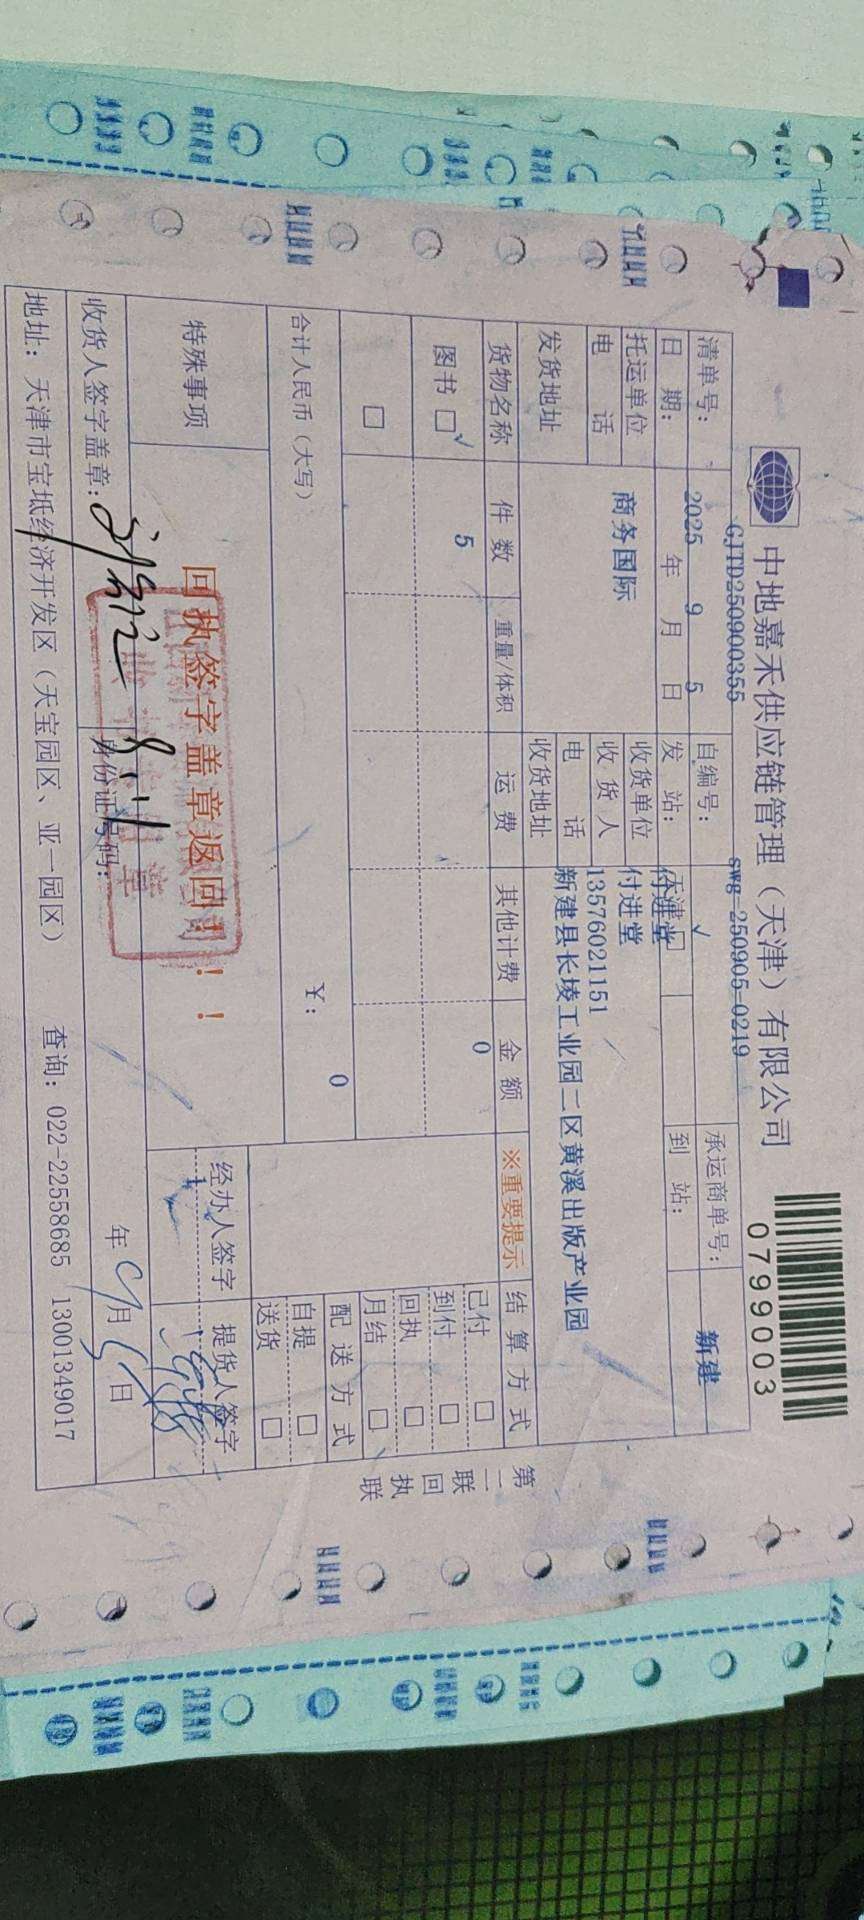 中地嘉禾供应链管理（天津）有限公司
0799003
清单号： GJTD250900355 自编号： swg-250905-0219 承运商单号：
日 期： 2025 年 9 月 5 日 发 站： 天津 √ □ 到 站： 新建
托运单位 商务国际 收货单位 付进堂
电 话 收 货 人 付进堂
发货地址 电 话 13576021151
收货地址 新建县长堎工业园二区黄溪出版产业园
货物名称 件 数 重量/体积 运 费 其他计费 金 额 ※重要提示 结 算 方 式
图书 □ √ 5 0
□
已付 □
到付 □
回执 □
月结 □
合计人民币（大写） ¥： 0
配 送 方 式
自提 □
送货 □
特殊事项 回执签字盖章返回！！！
经办人签字 提货人签字
收货人签字盖章： 身份证号码： 年 9 月 5 日
地址：天津市宝坻经济开发区（天宝园区、亚一园区） 查询：022-22558685 13001349017
第二联 回执联